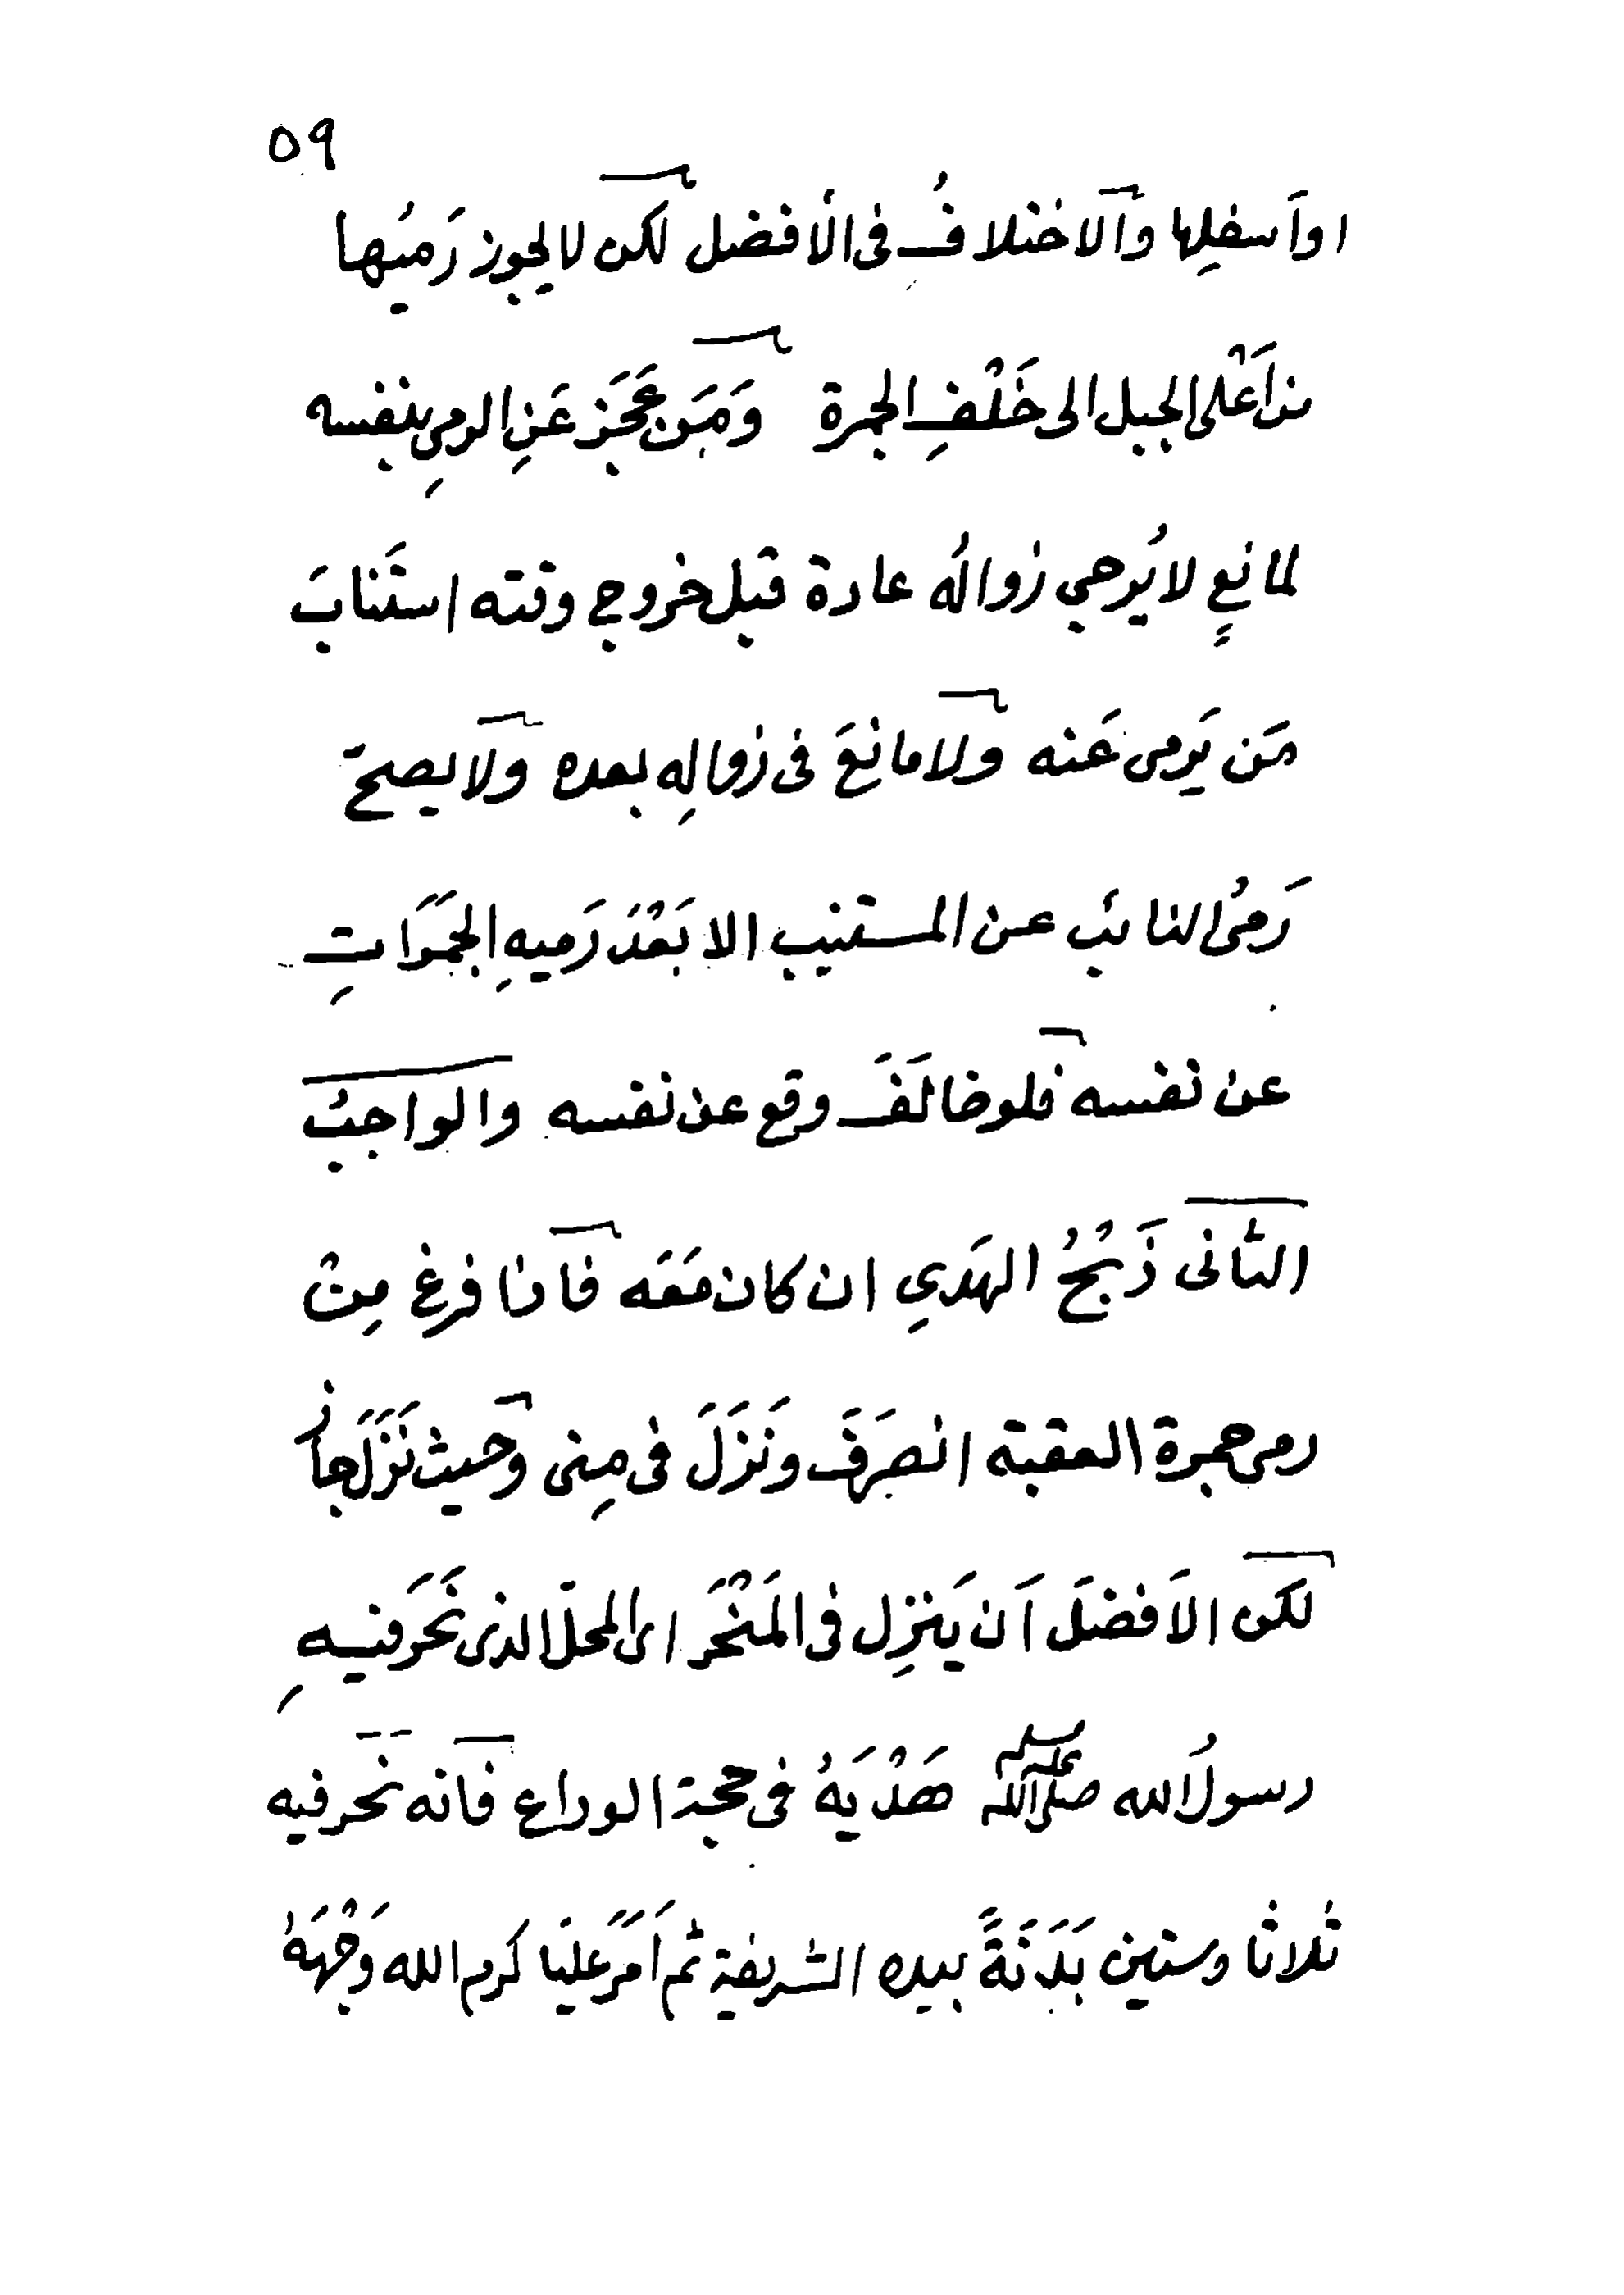 ٥٩
او اَسفلِها وَالاختلافُ فى الأفضل لكن لا يجوز رَميُها
من اَعْلى الجبل الى خَلْفِ الجمرة وَمَن عَجَز عَنِ الرمىِ بنفسه
لمانعٍ لا يُرجى زوالُه عادة قبل خروج وقته استَنابَ
مَن يَرمى عَنه ولا مانعَ فى زوالِه بعده ولا يصحّ
رَمىُ النائب عن المستنيب الا بَعْدَ رَميهِ الجَمَرَاتِ
عن نفسه فلو خالَفَ وقع عن نفسه والواجبُ
الثانى ذَبْحُ الهَدىِ ان كان مَعَه فاذا فرغ مِنْ
رمى جمرة العقبة انصَرَفَ ونَزَلَ فى مِنى وحَيث نَزَلَ جاز
لكن الاَفضلَ اَن يَنزِل فى المَنْحَر اى المحلّ الذى نَحَر فيهِ
رسولُ الله صلى الله عليه وسلم هَدْيَهُ فى حجة الوداع فانه نَحَر فيه
ثلاثا وستين بَدَنَةً بيده الشريفة ثم اَمَرَ عليا كرم الله وَجْهَهُ